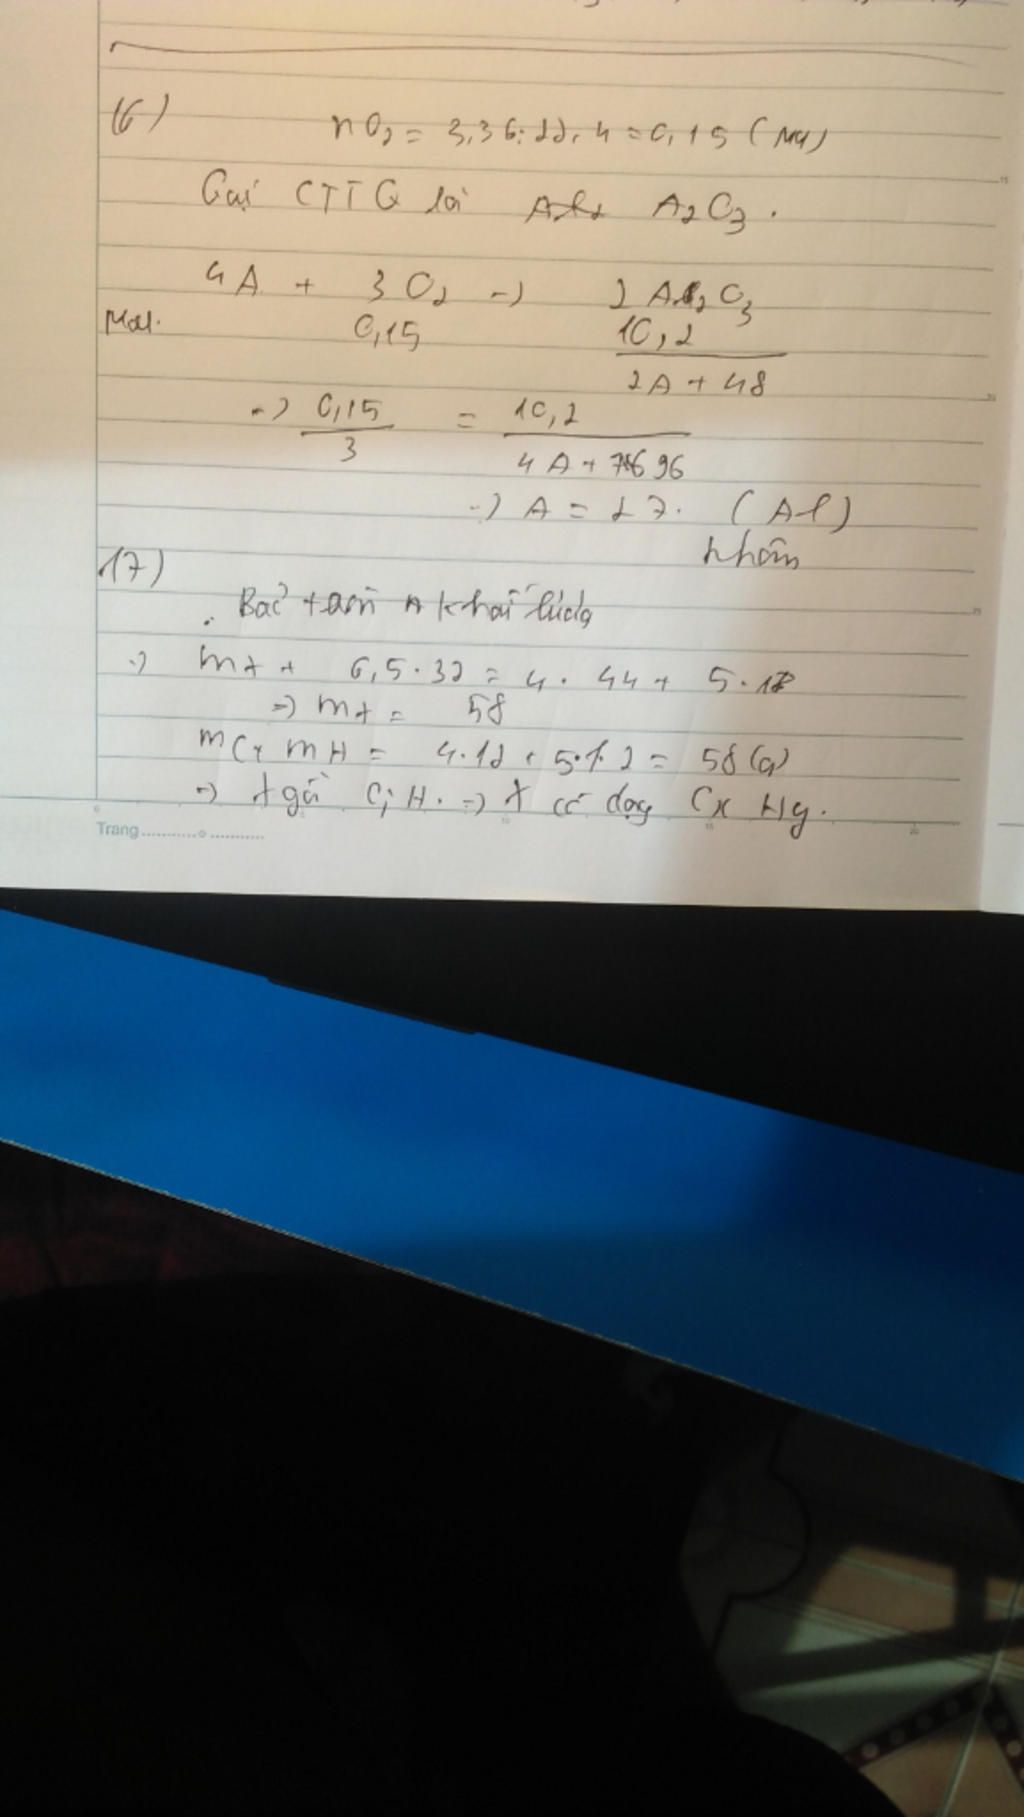 16)
nO2 = 3,36:22,4 = 0,15 (mol)
Gọi CTTQ là A2O3.
4A + 3O2 -> 2A2O3
Mol. 0,15 10,2
2A + 48
-> 0,15 = 10,2
3 4A + 96
-> A = 27. (Al)
Nhôm
17)
Bảo toàn khối lượng
-> mA + 6,5.32 = 4.44 + 5.18
=> mA = 58
mC + mH = 4.12 + 5.1.2 = 58(g)
-> A gồm C, H. => A có dạng CxHy.
Trang